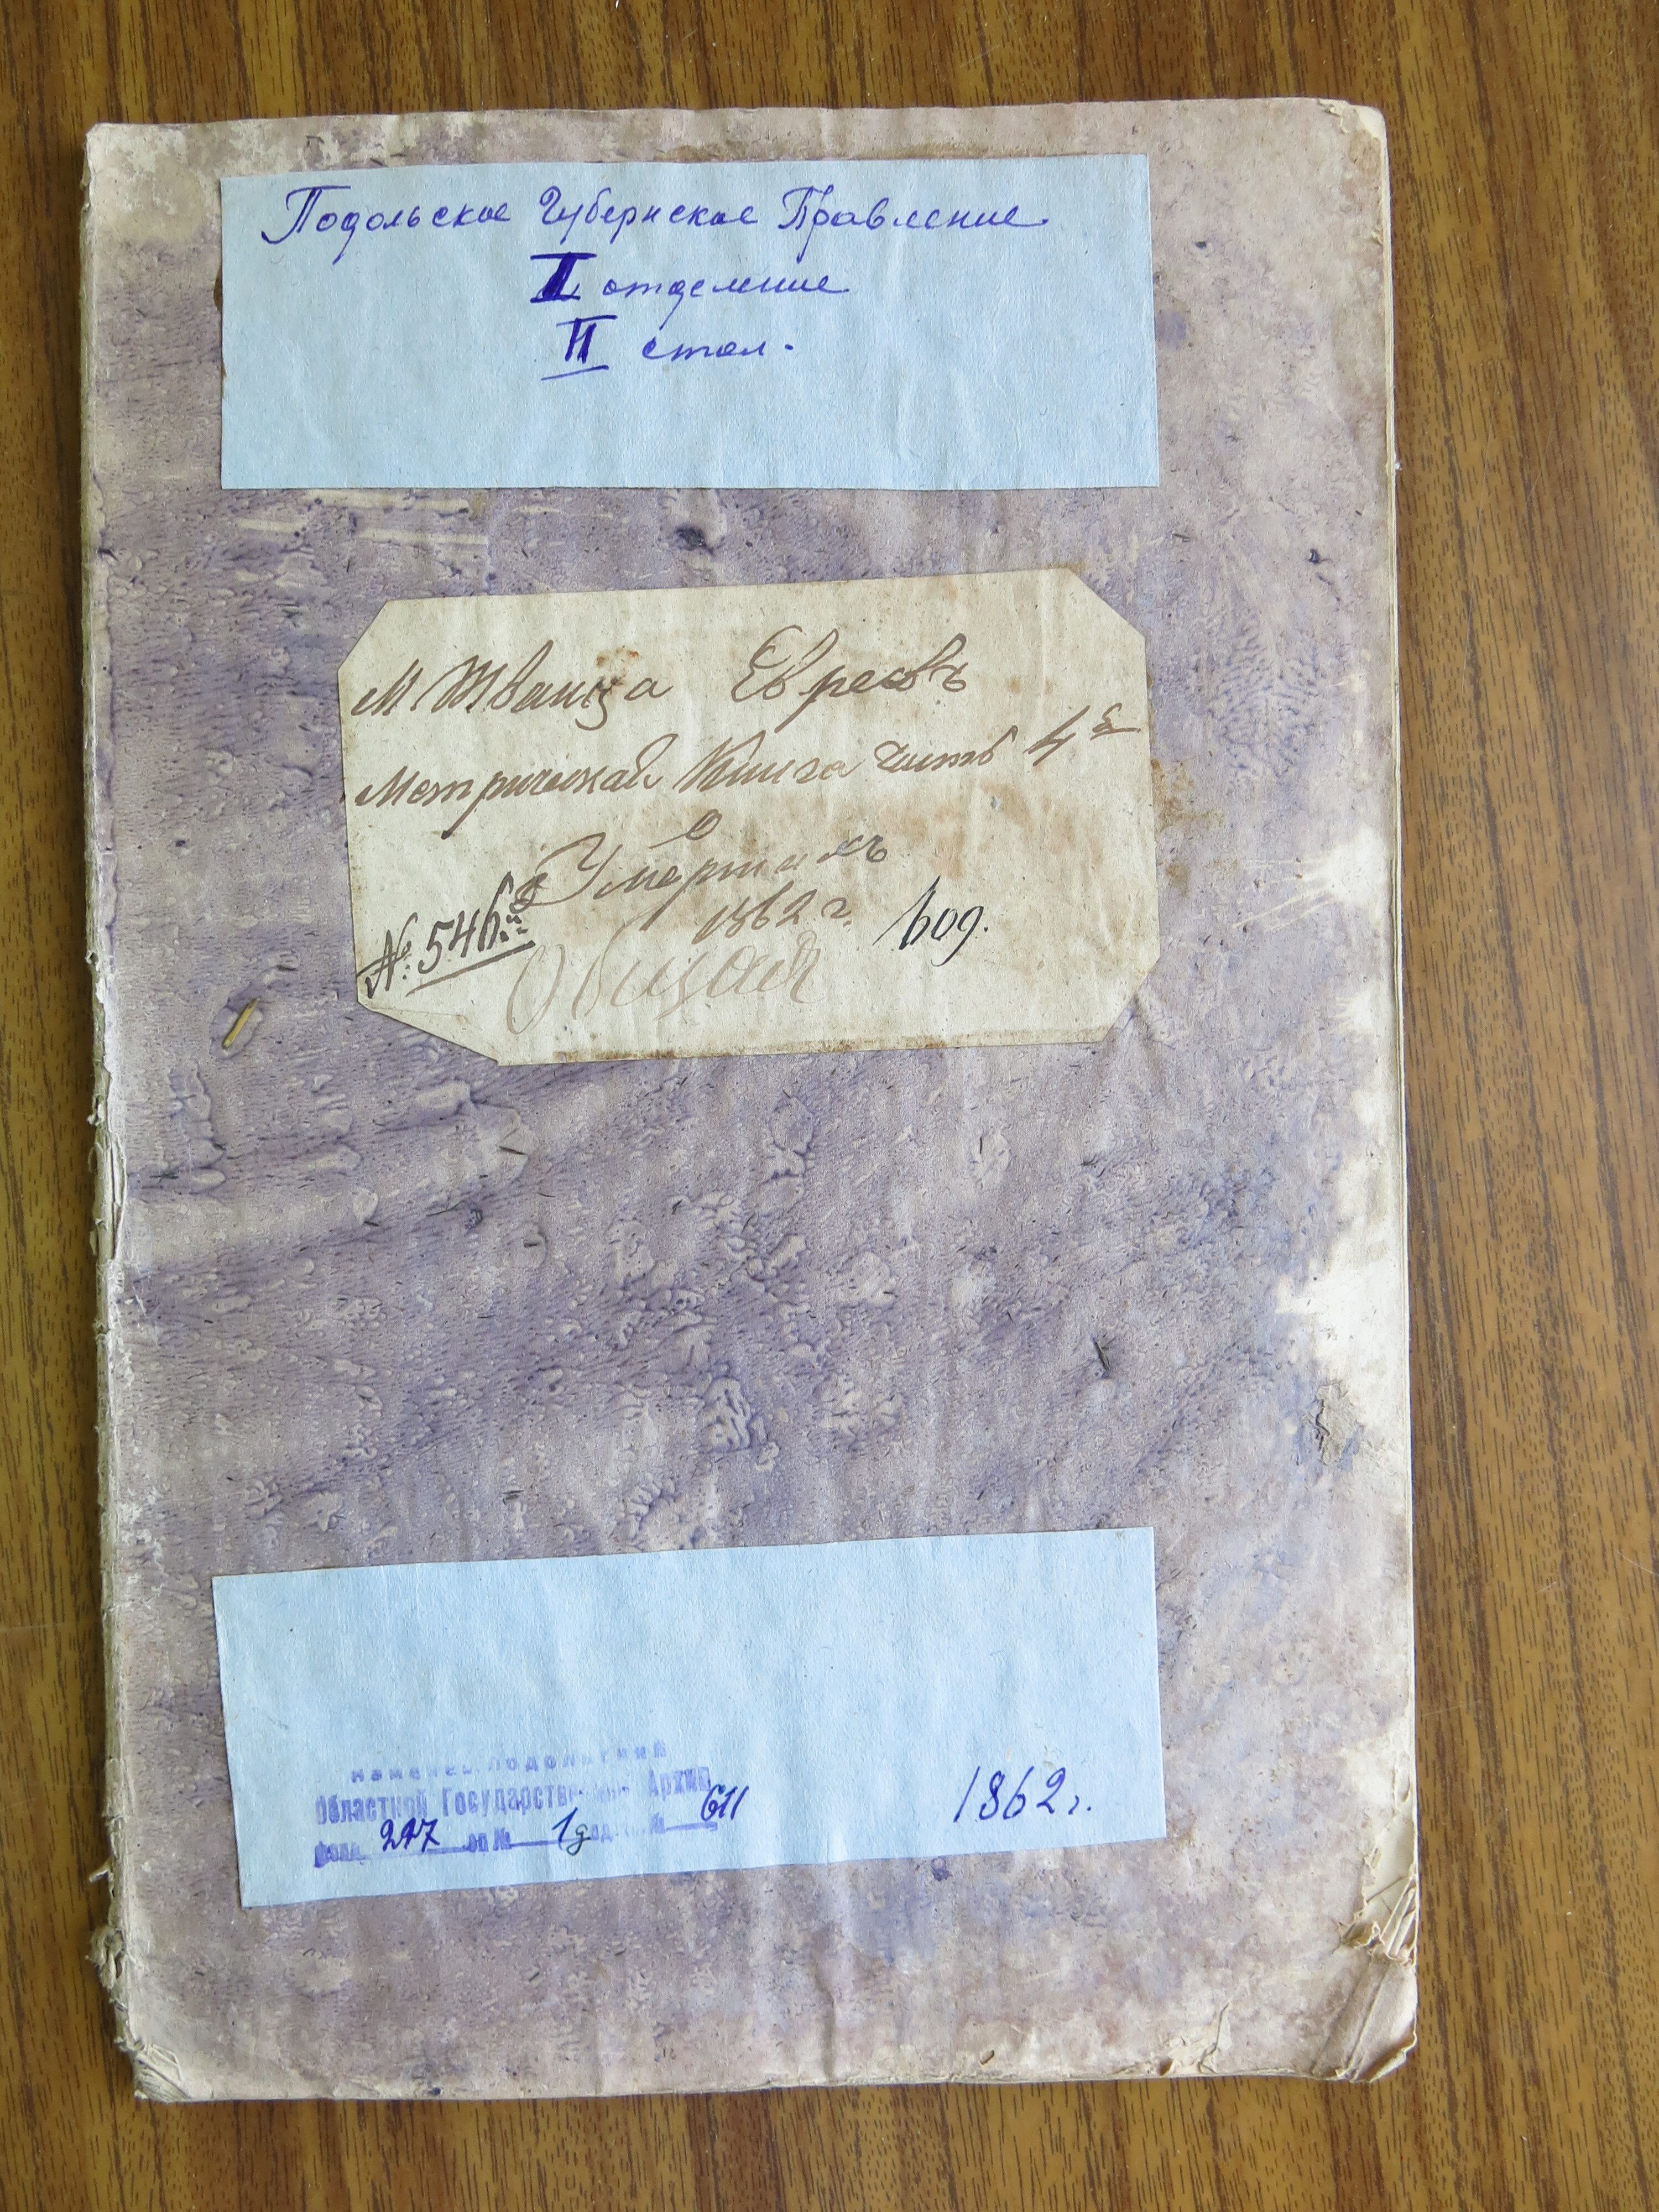 Подольское Губернское Правление
I отделение
II стол.
М Жванца Евреевъ
Метрической Книга часть 4я
О
Умершихъ
1862 г. 609.
№ 546й
Общая
Каменец-Подольский
Областной Государственный Архив
Фонд 227 оп № 1д ед. № 611
1862 г.